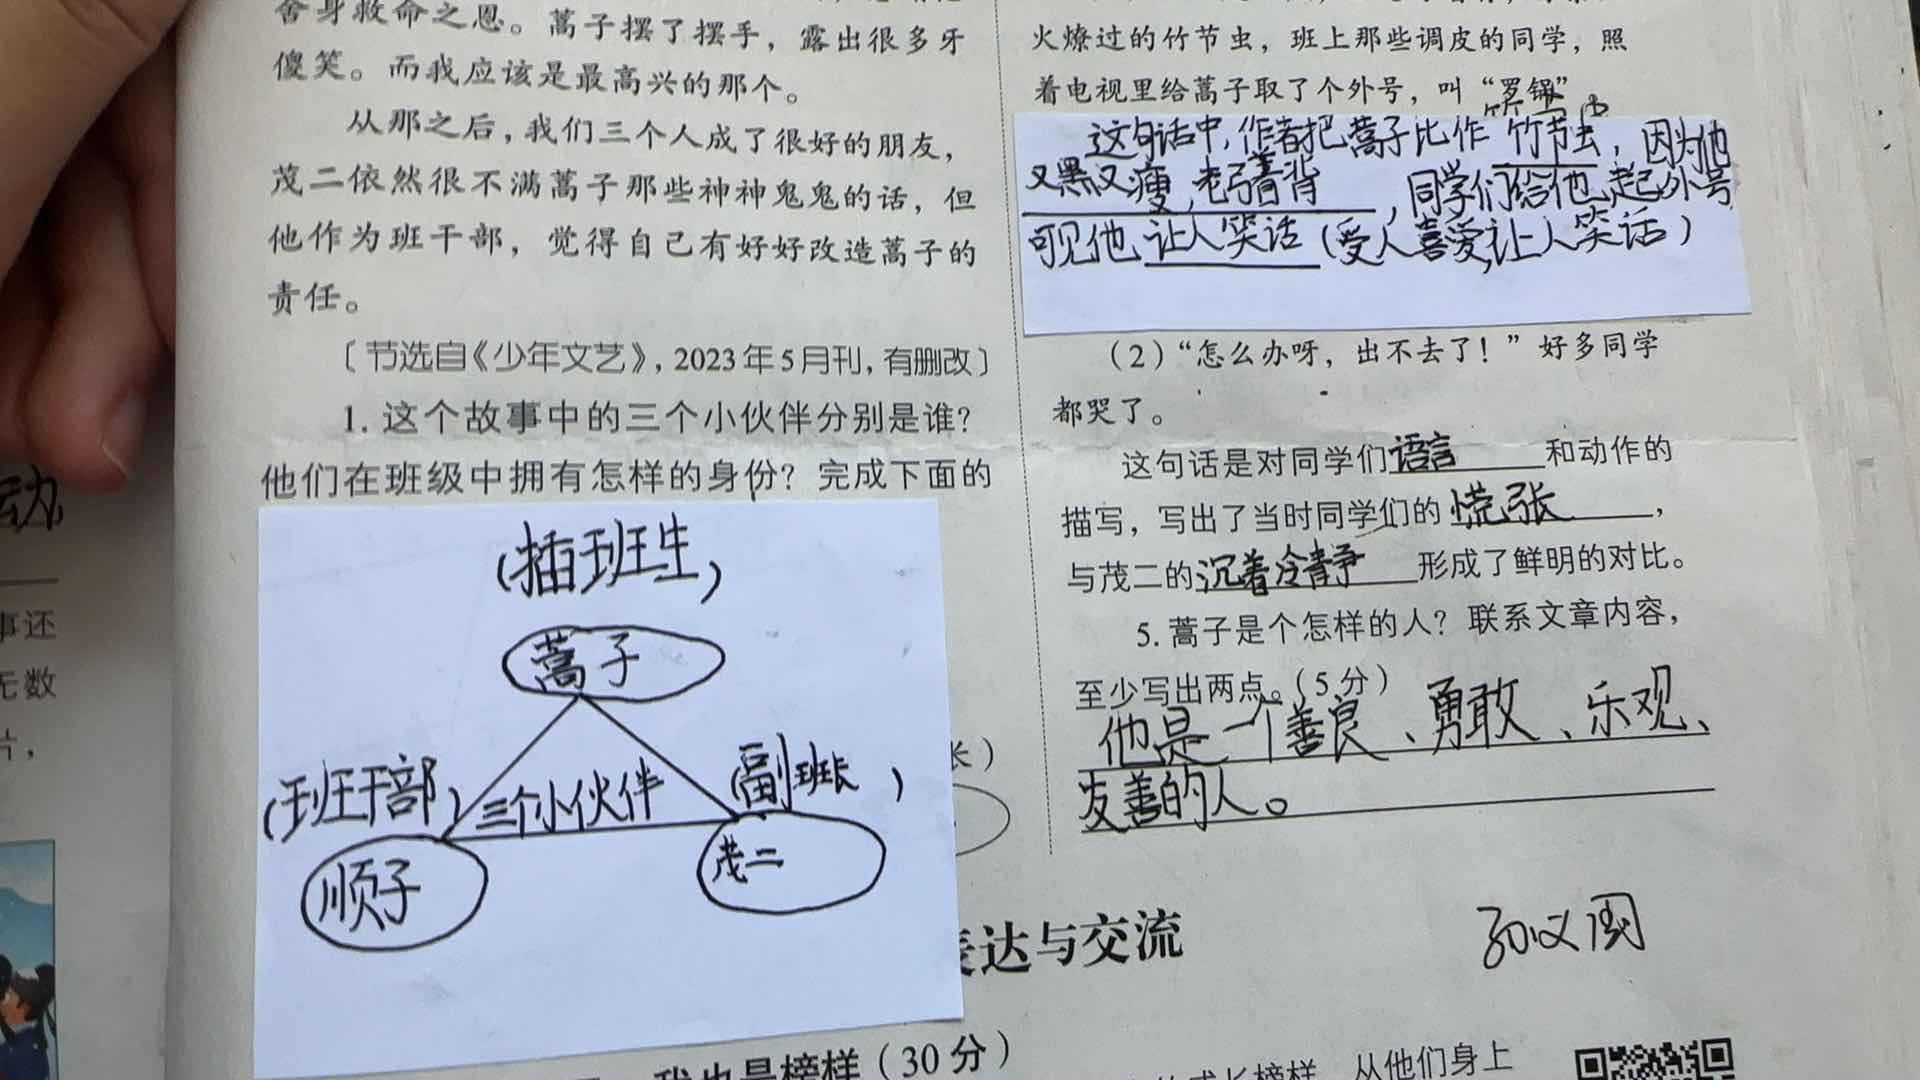 舍身救命之恩。蒿子摆了摆手，露出很多牙
傻笑。而我应该是最高兴的那个。
从那之后，我们三个人成了很好的朋友，
茂二依然很不满蒿子那些神神鬼鬼的话，但
他作为班干部，觉得自己有好好改造蒿子的
责任。
〔节选自《少年文艺》，2023年5月刊，有删改〕
1. 这个故事中的三个小伙伴分别是谁？
他们在班级中拥有怎样的身份？完成下面的
(插班生)
蒿子
(班干部)
三个小伙伴
(副班长)
顺子
茂二
长）
火燎过的竹节虫，班上那些调皮的同学，照
着电视里给蒿子取了个外号，叫“罗锅”
这句话中，作者把蒿子比作 竹节虫，因为他
又黑又瘦，老弓着背，同学们给他起外号
可见他 让人笑话（受人喜爱，让人笑话）
（2）“怎么办呀，出不去了！”好多同学
都哭了。
这句话是对同学们语言和动作的
描写，写出了当时同学们的慌张，
与茂二的沉着冷静形成了鲜明的对比。
5. 蒿子是个怎样的人？联系文章内容，
至少写出两点。（5分）
他是一个善良、勇敢、乐观、
友善的人。
表达与交流
我也是榜样（30分）
成长榜样，从他们身上
动
事还
无数
片，